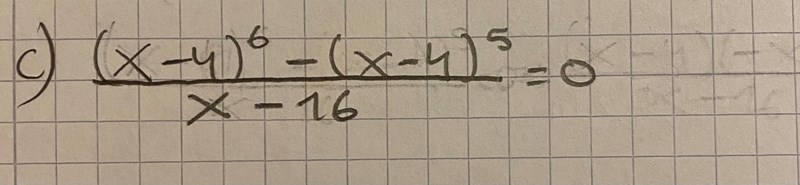 c) (x-4)⁶ - (x-4)⁵
x - 16 = 0